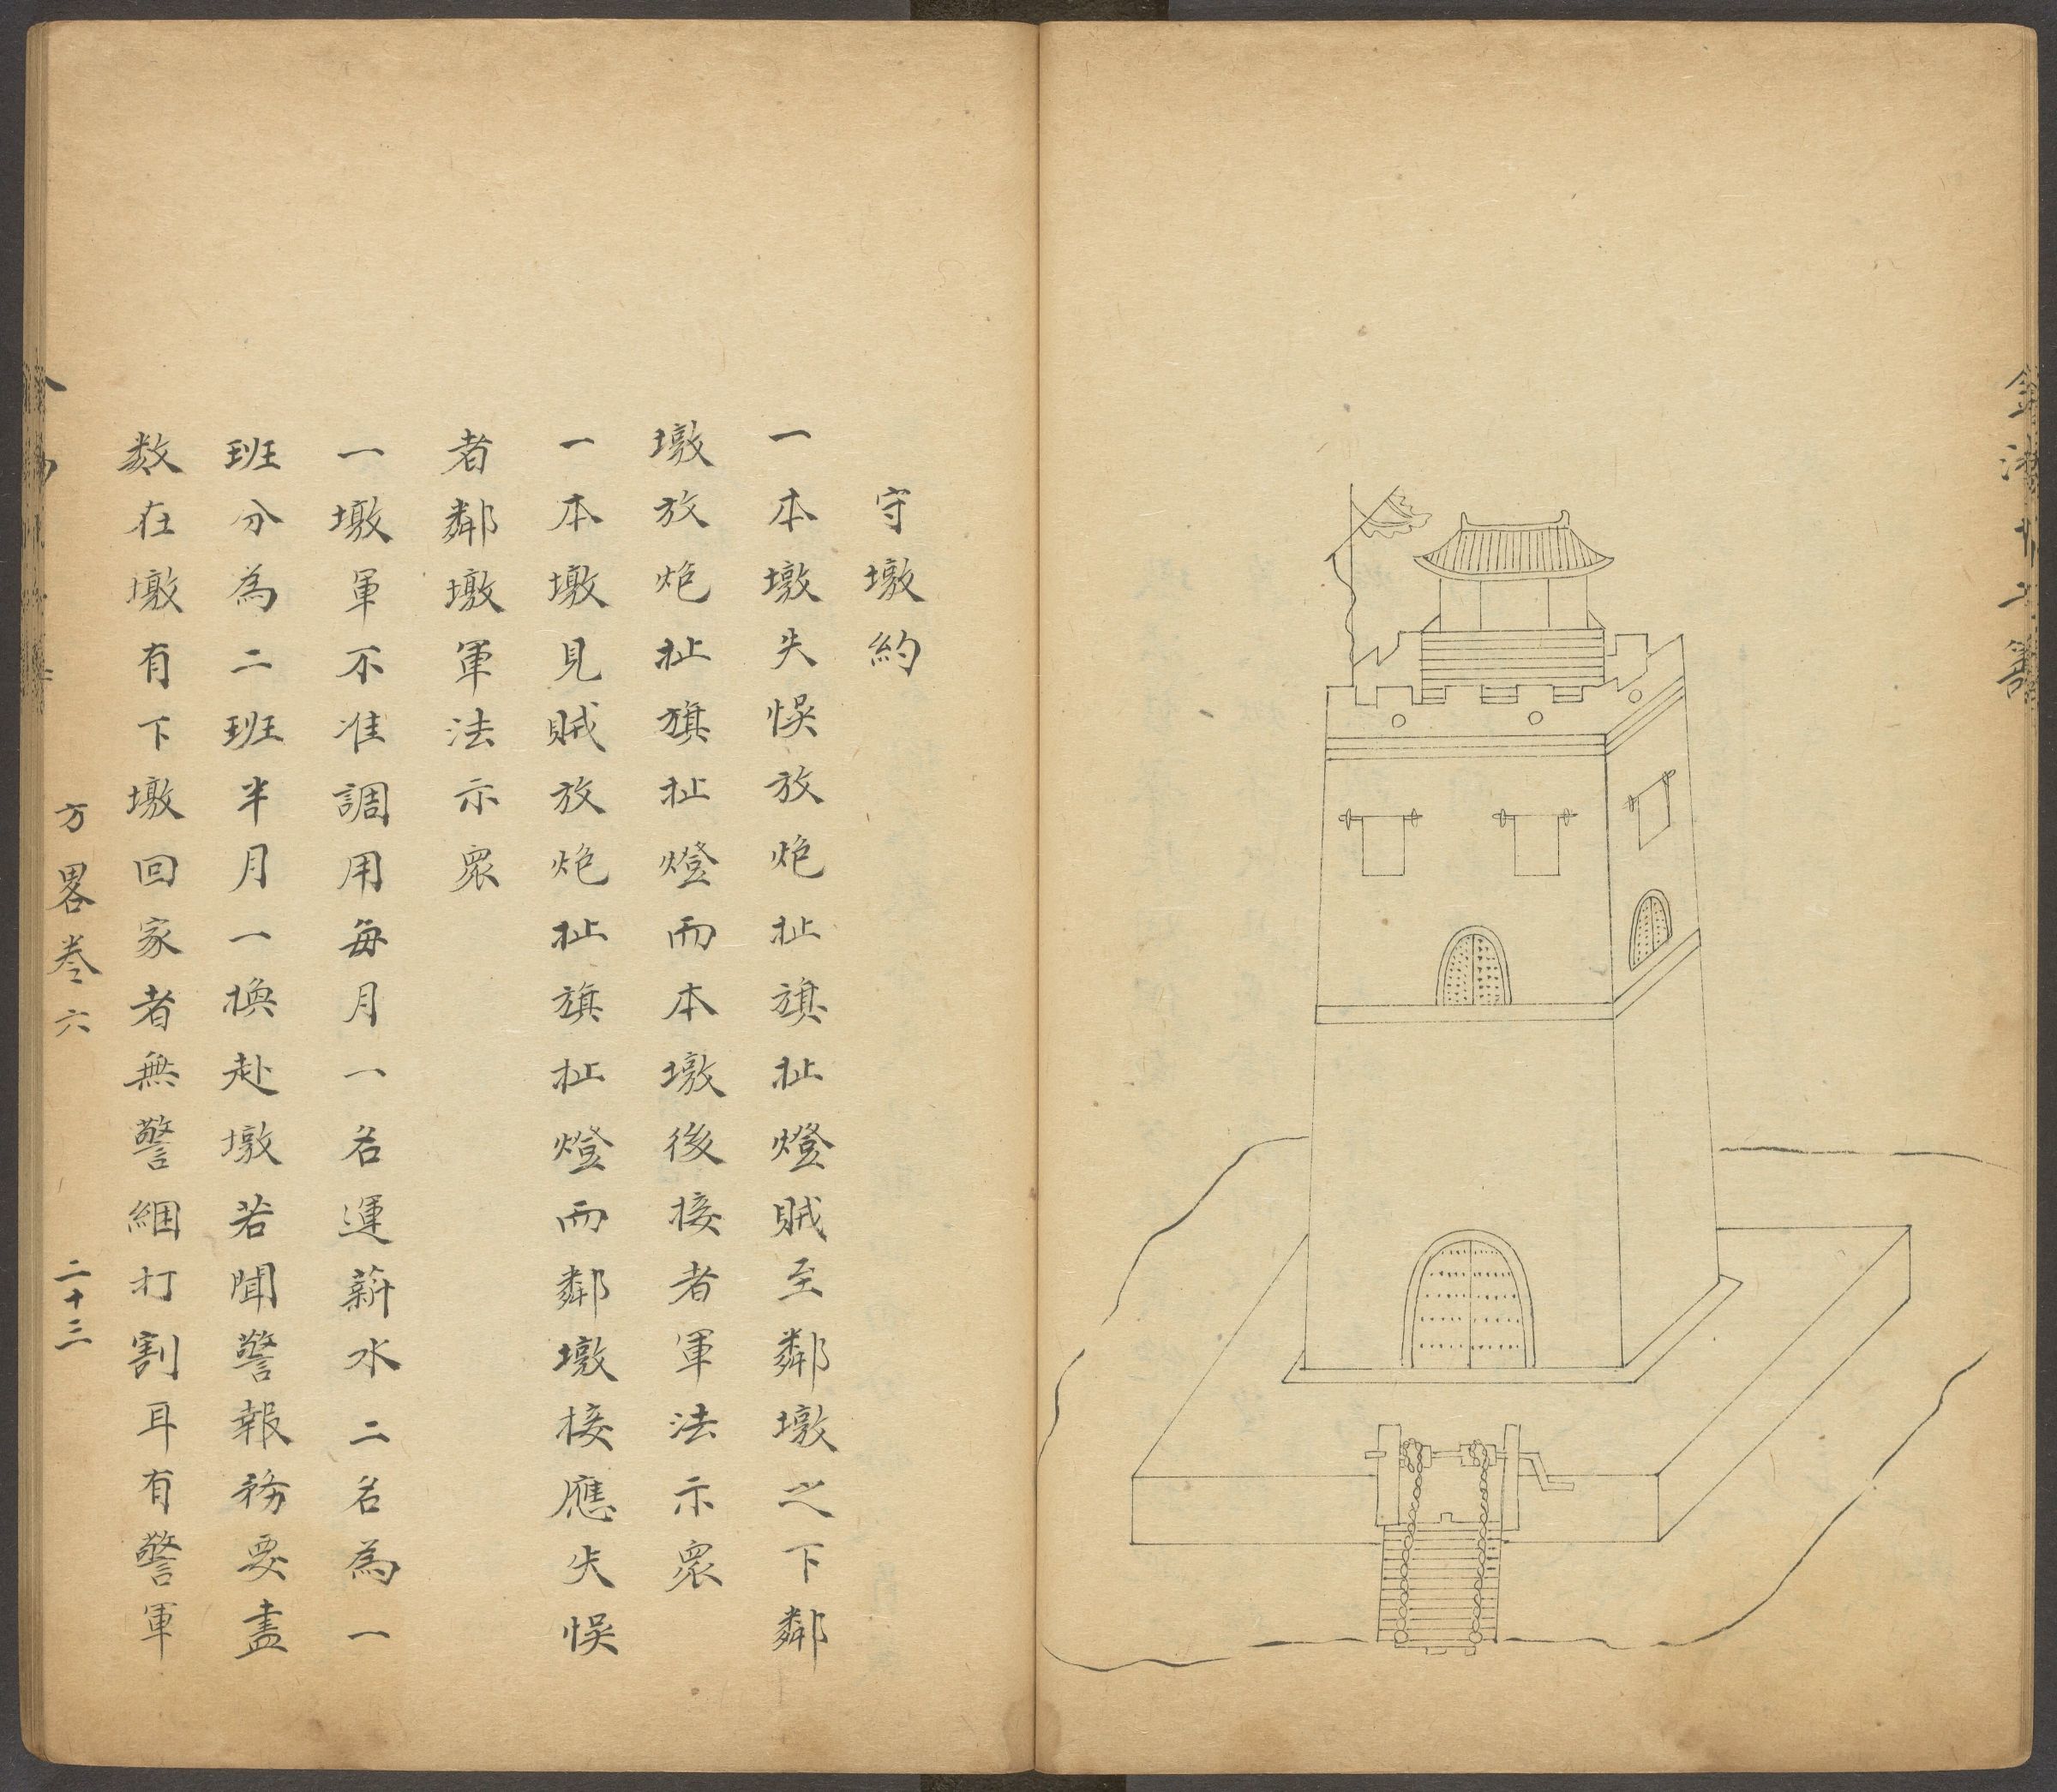 守墩約
一本墩失悞放炮扯旗扯燈賊至鄰墩之下鄰
墩放炮扯旗扯燈而本墩後接者軍法示眾
一本墩見賊放炮扯旗扯燈而鄰墩接應失悞
者鄰墩軍法示眾
一墩軍不准調用每月一名運薪水二名為一
班分為二班半月一換赴墩若聞警報務要盡
数在墩有下墩回家者無警綑打割耳有警軍
方畧卷六
二十三